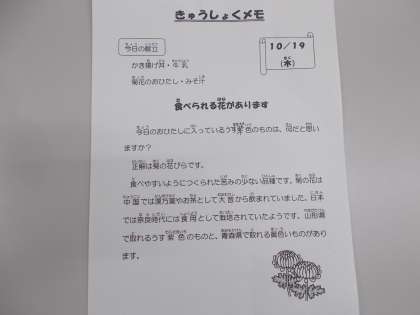 きゅうしょくメモ
今日の献立
10/19
(水)
かき揚げ丼・牛乳
菊花のおひたし・みそ汁
食べられる花があります
今日のおひたしに入っているうす紫色のものは、何だと思い
ますか?
正解は菊の花びらです。
食べやすいようにつくられた苦みの少ない品種です。菊の花は
中国では漢方薬やお茶として大昔から飲まれていました。日本
では奈良時代には食用として栽培されていたようです。山形県
で取れるうす紫色のものと、青森県で取れる黄色いものがあり
ます。